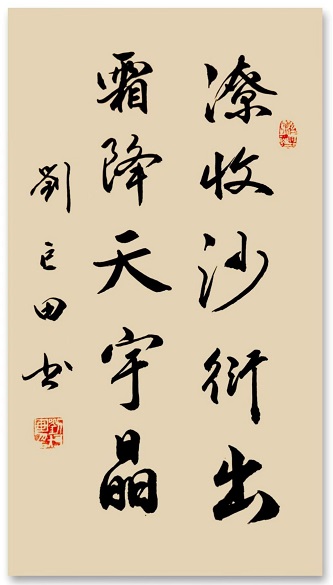 潦收沙衍出
霜降天宇晶
劉巨田书